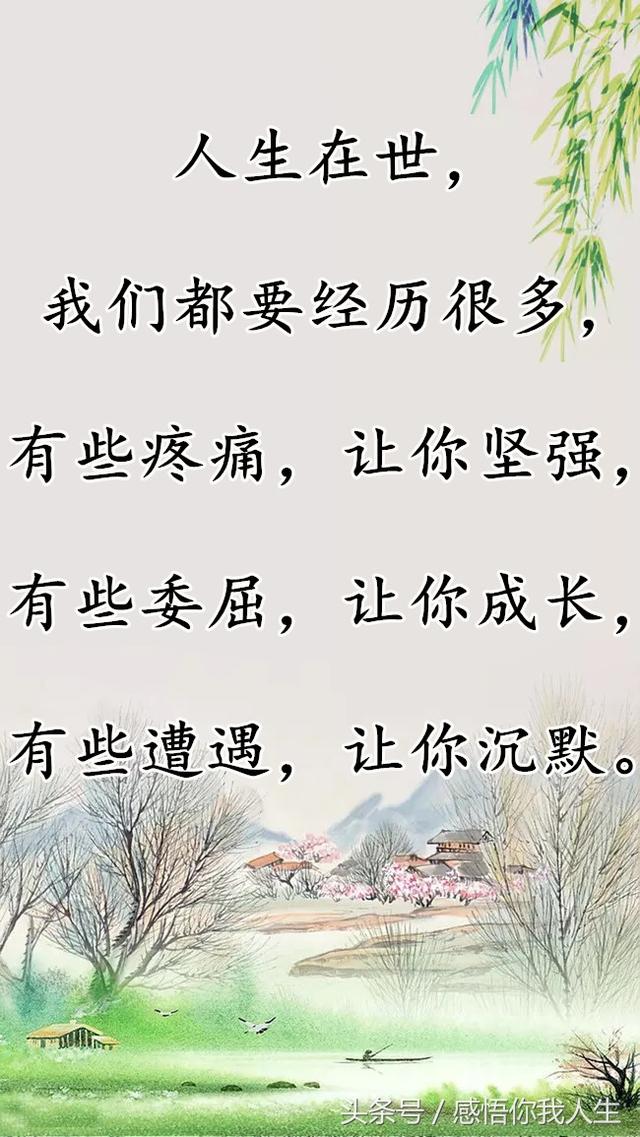 人生在世，
我们都要经历很多，
有些疼痛，让你坚强，
有些委屈，让你成长，
有些遭遇，让你沉默。
头条号 / 感悟你我人生